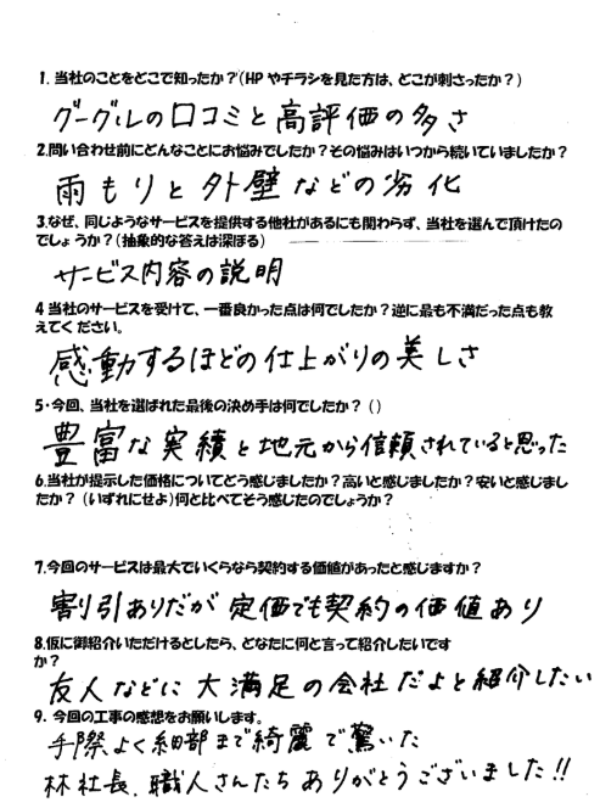 1. 当社のことをどこで知ったか？(HPやチラシを見た方は、どこが刺さったか？)
グーグルの口コミと高評価の多さ
2.問い合わせ前にどんなことにお悩みでしたか？その悩みはいつから続いていましたか？
雨もりと外壁などの劣化
3.なぜ、同じようなサービスを提供する他社があるにも関わらず、当社を選んで頂けたの
でしょうか？(抽象的な答えは深ぼる)
サービス内容の説明
4 当社のサービスを受けて、一番良かった点は何でしたか？逆に最も不満だった点も教
えてください。
感動するほどの仕上がりの美しさ
5・今回、当社を選ばれた最後の決め手は何でしたか？()
豊富な実績と地元から信頼されていると思った
6.当社が提示した価格についてどう感じましたか？高いと感じましたか？安いと感じまし
たか？(いずれにせよ)何と比べてそう感じたのでしょうか？
7.今回のサービスは最大でいくらなら契約する価値があったと感じますか？
割引ありだが定価でも契約の価値あり
8.仮に御紹介いただけるとしたら、どなたに何と言って紹介したいです
か？
友人などに大満足の会社だよと紹介したい
9. 今回の工事の感想をお願いします。
手際よく細部まで綺麗で驚いた
林社長、職人さんたちありがとうございました!!